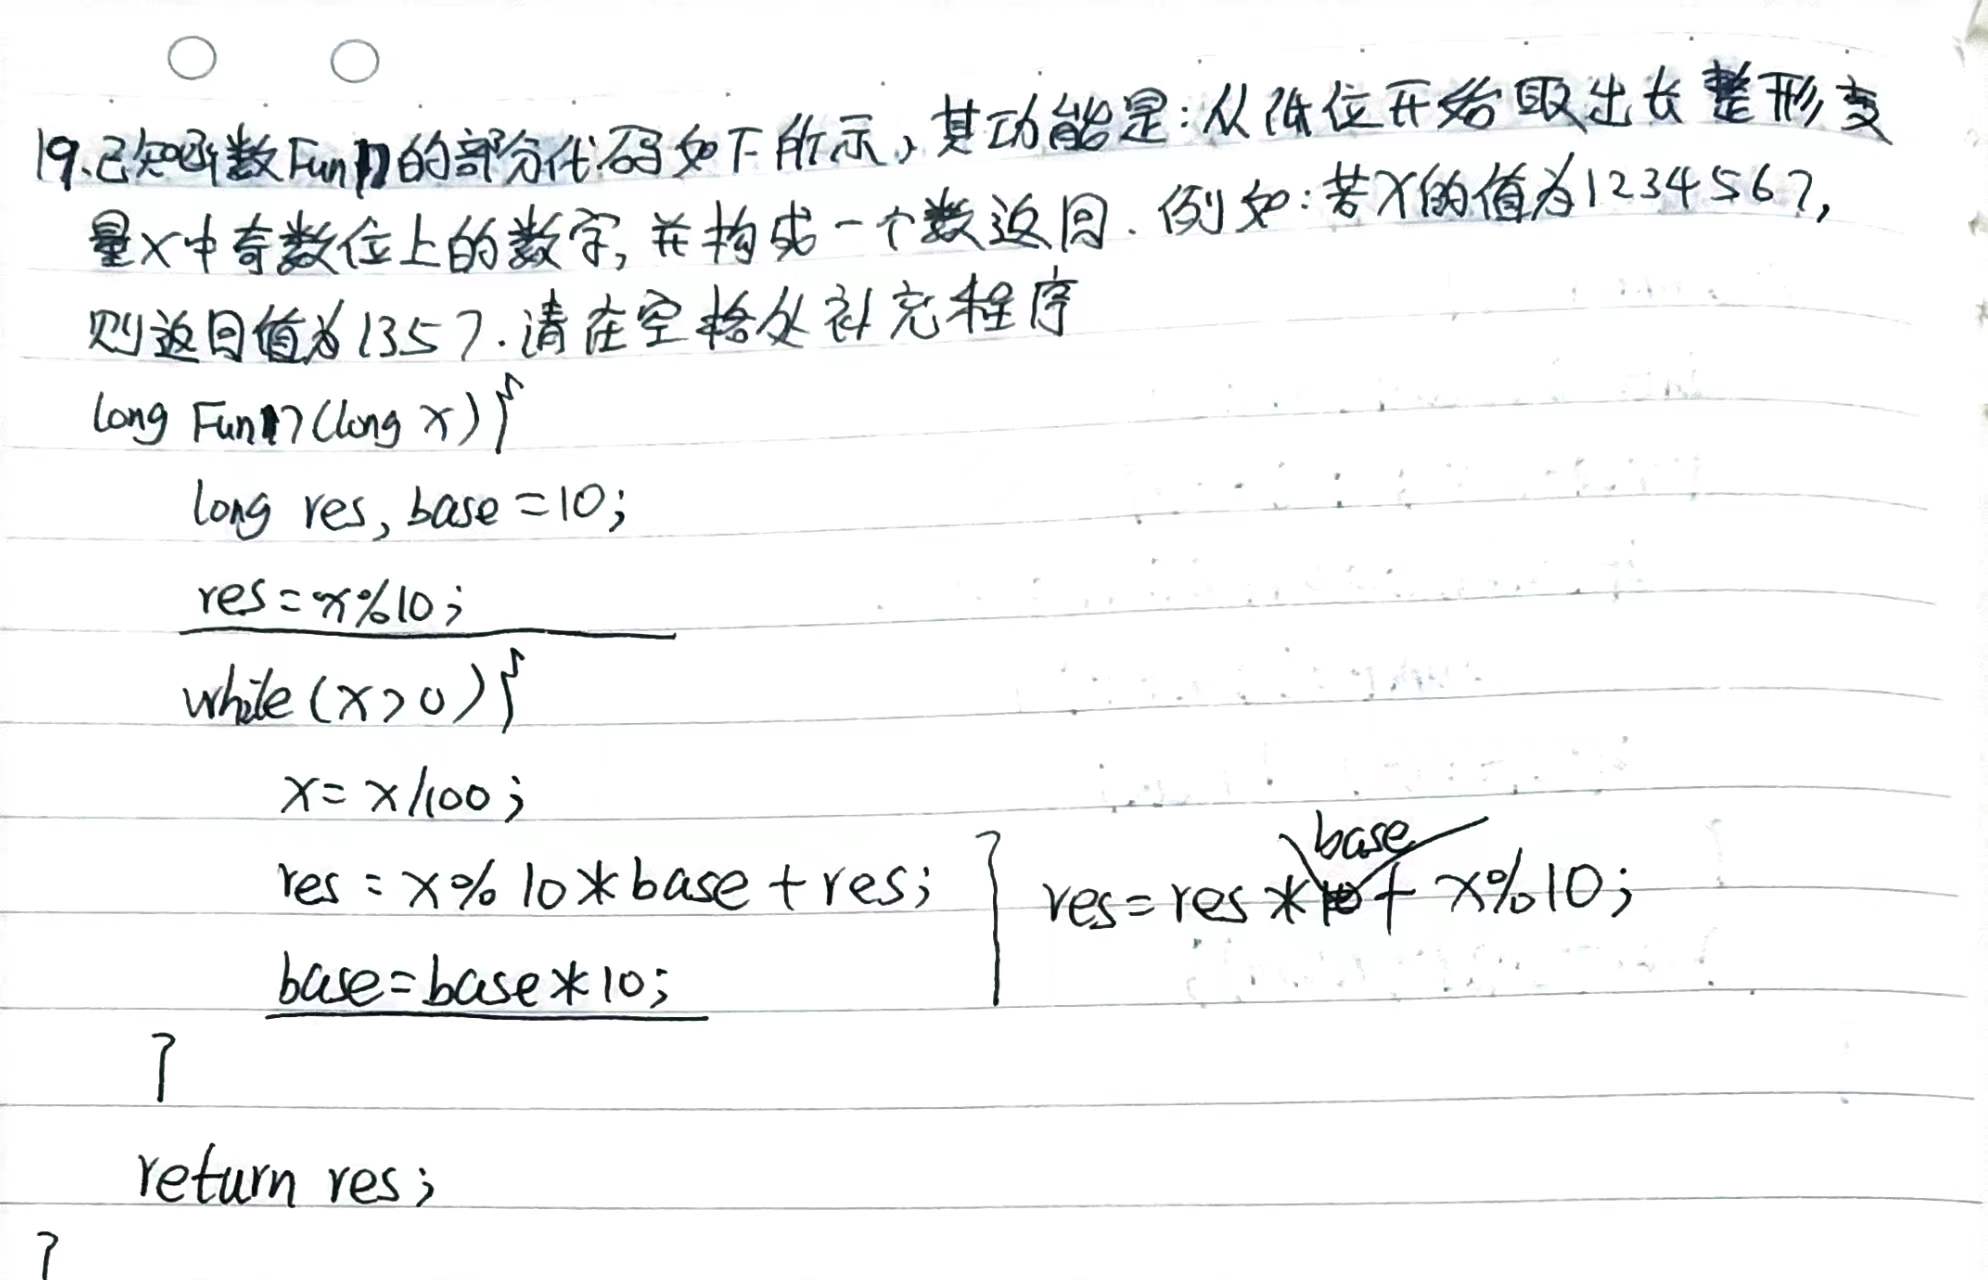 19.已知函数Fun17的部分代码如下所示,其功能是:从低位开始取出长整形变
量x中奇数位上的数字,并构成一个数返回.例如:若x的值为1234567,
则返回值为1357.请在空格处补充程序
long Fun17(long x){
long res, base=10;
res=x%10;
while(x>0){
x=x/100;
res=x%10*base+res;
base=base*10;
}
return res;
}
base
res=res*10+x%10;